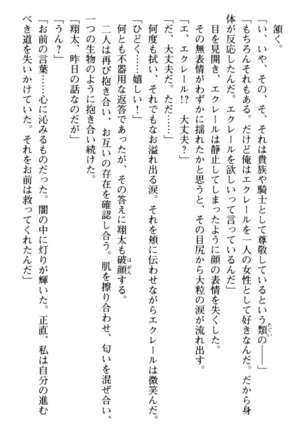 頷く。
「い、いや、その、そ、それは貴族や騎士として尊敬しているという類の――」
「もちろんそれもある。だけど俺はエクレールを一人の女性として好きなんだ。だから身
体が反応したんだ。エクレールが欲しいって言っているんだ」
目を見開き、エクレールは静止してしまったように顔の表情を失くした。
その無表情がわずかに揺れたかと思うと、その目尻から大粒の涙が流れ出す。
「エ、エクレール!?　大丈夫？」
「だ、大丈夫だ。ただ……」
何度も拭い、それでもなお溢れ出る涙。それを頬に伝わせながらエクレールは微笑んだ。
「ひどく……嬉しい！」
何とも不器用な返答であったが、その答えに翔太も破顔する。
二人は再び抱き合い、お互いの存在を確認し合う。肌を擦り合わせ、匂いを混ぜ合い、
一つの生物のように抱き合い続けた。
「翔太、昨日の話なのだが」
「うん？」
「お前の言葉……心に沁みるものだった。闇の中に灯りが輝いた。正直、私は自分の進む
べき道を失いかけていた。それをお前は救ってくれたんだ」